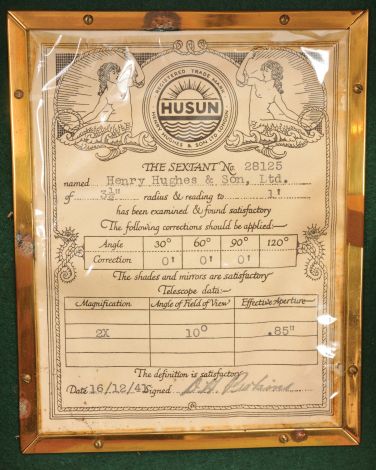 REGISTERED TRADE MARK
HUSUN
HENRY HUGHES & SON LTD LONDON
THE SEXTANT No. 28125
named Henry Hughes & Son, Ltd.
of 3½" radius & reading to 1'
has been examined & found satisfactory
The following corrections should be applied:-
Angle 30° 60° 90° 120°
Correction 0' 0' 0' 0'
The shades and mirrors are satisfactory
Telescope data:-
Magnification Angle of Field of View Effective Aperture
2X 10° .85"
The definition is satisfactory
Date 16/12/41 Signed